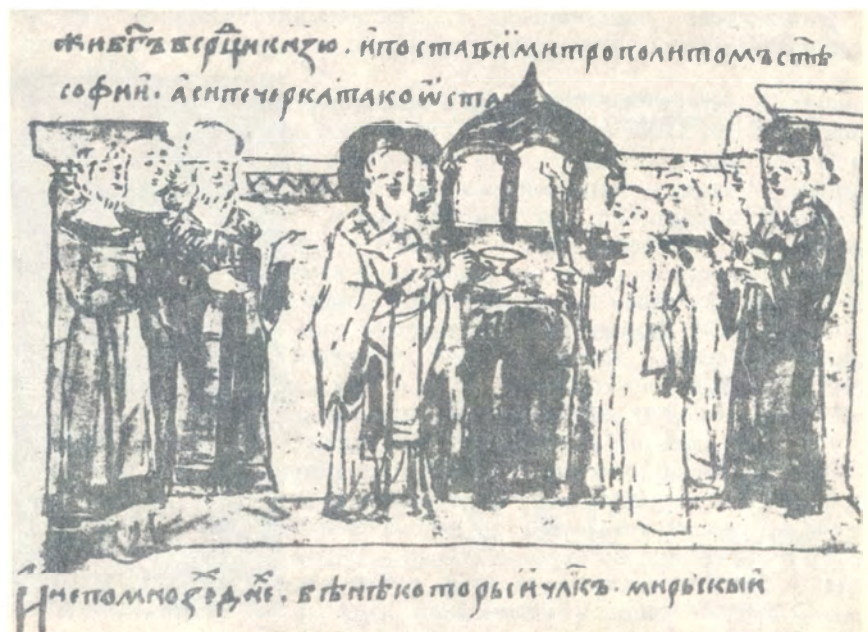 жи бг҃ъ всерⷣци кнзю . и постави и митрополитомъ ст҃ѣ
софии . а си печерка тако ѡста
И не по мнозѣⷯ днеⷯ . бѣ нѣкоторыи чл҃къ . мирьскыи